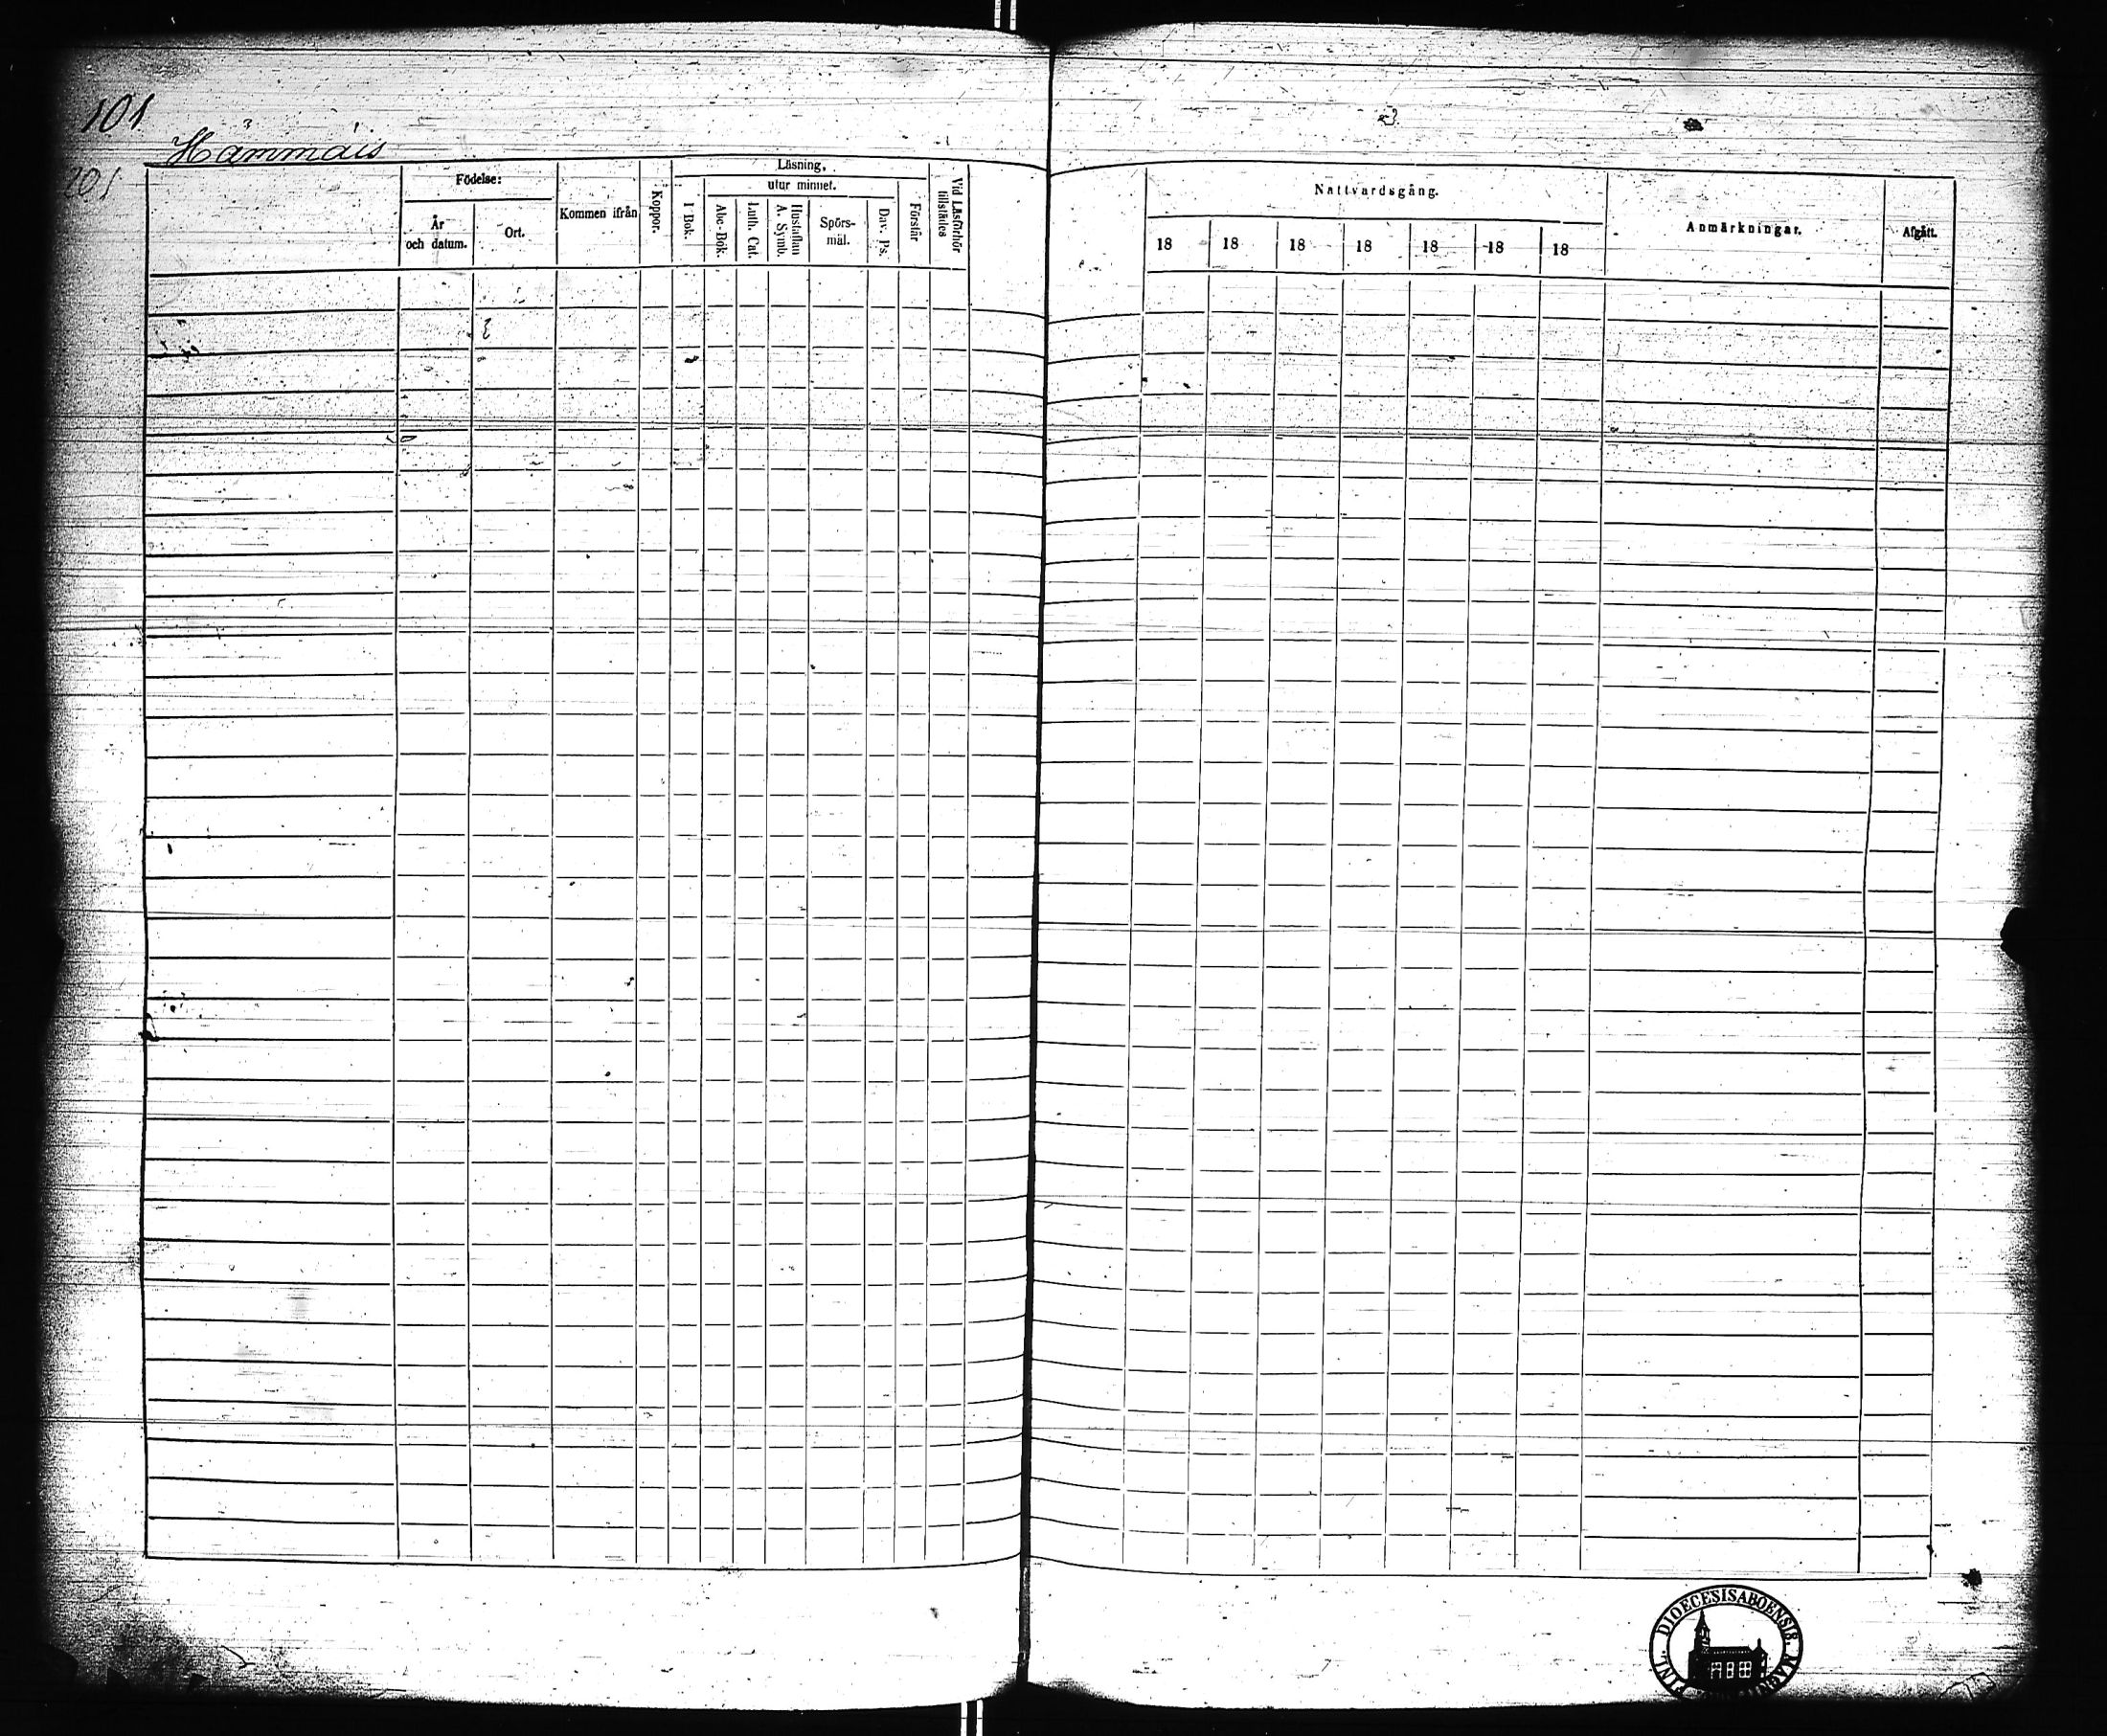 101
Hämmäis
201
Födelse:
År
och datum.
Ort.
Kommen ifrån
Koppor.
Läsning,
utur minnet.
I Bok.
Abc-Bok.
Luth. Cat.
Hustaflan
A. Symb.
Spörs-
mål.
Dav. Ps.
Förstår
Vid Läsförhör
tillstädes
Nattvardsgång.
18 18 18 18 18 18 18
Anmärkningar.
Afgått.
DIOECESIS ABOENSIS.